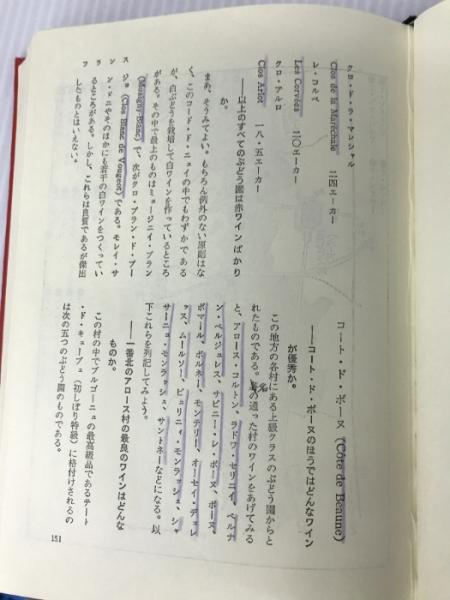 クロ・ド・ラ・マレシャル
Clos de la Maréchale　二四エーカー
レ・コルベ
Les Corvées　二〇エーカー
クロ・アルロ
Clos Arlot　一八・五エーカー
――以上のすべてのぶどう園は赤ワインばかり
か。
まあ、そうみてよい。もちろん例外のない原則はな
く、このコード・ド・ニュイの中でもわずかである
が、白ぶどうを栽培して白ワインを作っているところ
がある。その中で最上のものはミュージニイ・ブラン
(Musigny Blanc) で、次がクロ・ブラン・ド・ブー
ジョ (Clos Blanc de Vougeot) である。モレイ・サ
ン・ドニやそのほかにも若干の白ワインをつくってい
るところがある。しかし、これらは良質であるが傑出
したものとはいえない。
コート・ド・ボーヌ (Côte de Beaune)
――コート・ド・ボーヌのほうではどんなワイン
が優秀か。
この地方の各村にある上級クラスのぶどう園からと
れたものである。名の通った村のワインをあげてみる
と、アロース・コルトン、ラドワ・セリニイ、ペルナ
ン・ベルジュレス、サビニー・レ・ボーヌ、ボーヌ、
ポマール、ボルネー、モンテリー、オーセイ・デュレ
ッス、ムルソー、ピュリニイ・モンラッシェ、シャ
サーニュ・モンラッシェ、サントネーなどになる。以
下これらを列記してみよう。
――一番北のアロース村の最良のワインはどんな
ものか。
この村の中でブルゴーニュの最高級品であるテート
・ド・キューブェ（初しぼり特級）に格付けされるの
は次の五つのぶどう園のものである。
151